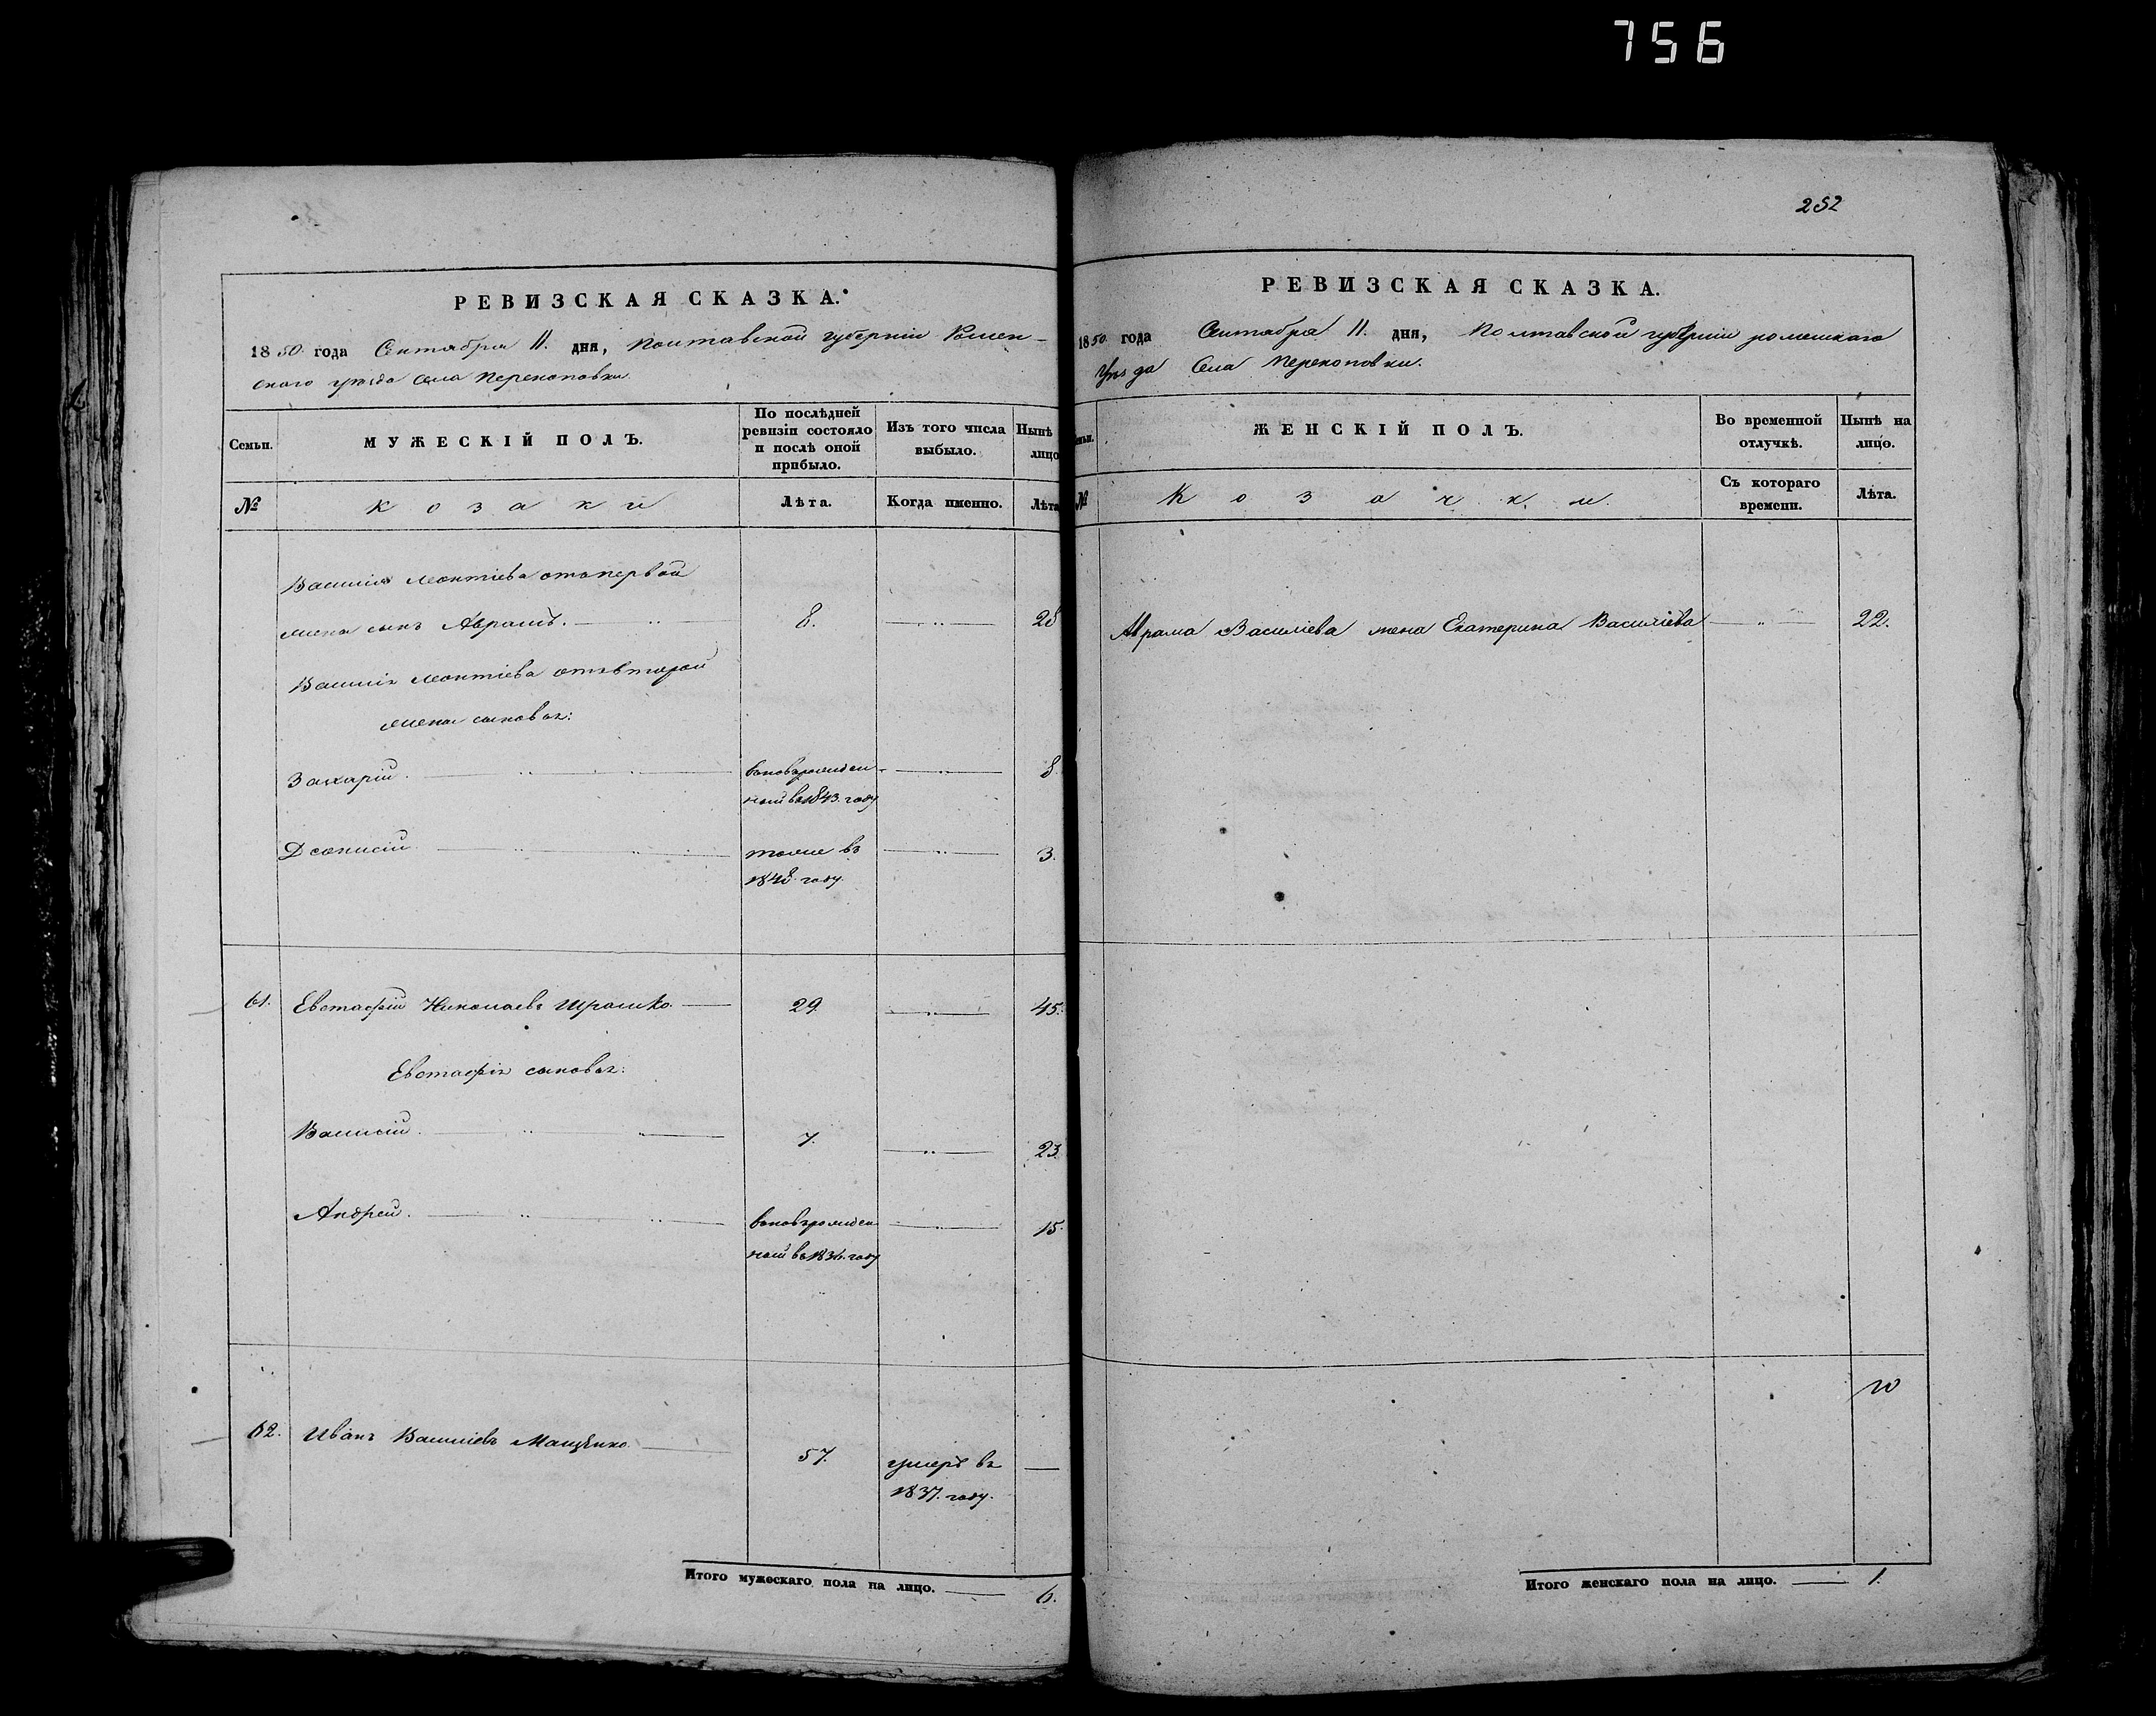 756
252
РЕВИЗСКАЯ СКАЗКА.
1850 года Сентября 11. дня, Полтавской губерніи Ромен-
ского уѣзда села Перекоповки
Семьи.
МУЖЕСКІЙ ПОЛЪ.
По послѣдней ревизіи состояло и послѣ оной прибыло.
Изъ того числа выбыло.
Нынѣ лицо
№
козаки
Лѣта.
Когда именно.
Лѣта
Василія Леонтіева отъ первой
жены сынъ Аврамъ. 8. 28
Василія Леонтіева отъ второй
жены сыновья:
Захарій. вновь рожден- 8
ный въ 1843. году
Діонисій тоже въ 3.
1848. году
61. Евстафій Николаевъ 29. 45.
Евстафія сыновья:
Василій. 7. 23.
Андрей. вновь рожден- 15.
ный въ 1836. году
62. Иванъ Василіевъ Мащенко 57. умеръ въ —
1837. году.
Итого мужескаго пола на лицо. 6.
РЕВИЗСКАЯ СКАЗКА.
1850 года Сентября 11. дня, Полтавской губерніи роменскаго
Уѣзда Села Перекоповки.
ЖЕНСКІЙ ПОЛЪ.
Во временной отлучкѣ.
Нынѣ на лицо.
№
Козачки.
Съ котораго времени.
Лѣта.
Аврама Василіева жена Екатерина Василіева 22.
Итого женскаго пола на лицо. 1.